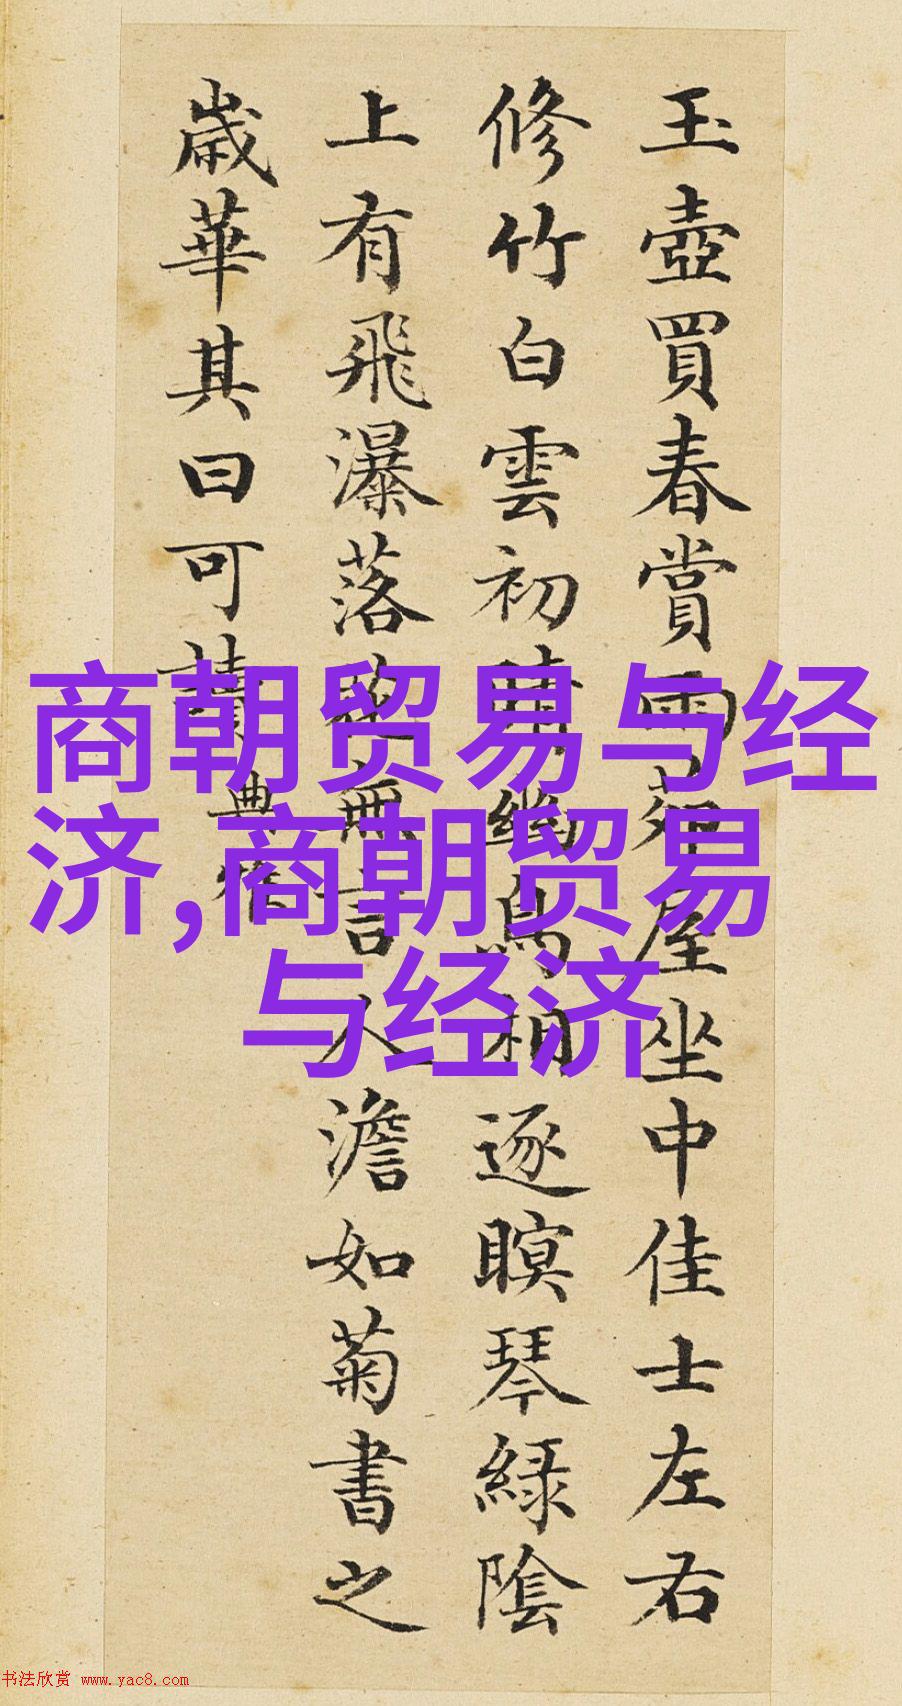 玉壺買春賞雨茆屋坐中佳士左右
修竹白雲初晴幽鳥相逐瞑琴綠陰
上有飛瀑落花無言人澹如菊書之
歲華其曰可讀典雅
商朝贸易与经
济,商朝贸易
与经济
书法欣赏 www.yac8.com